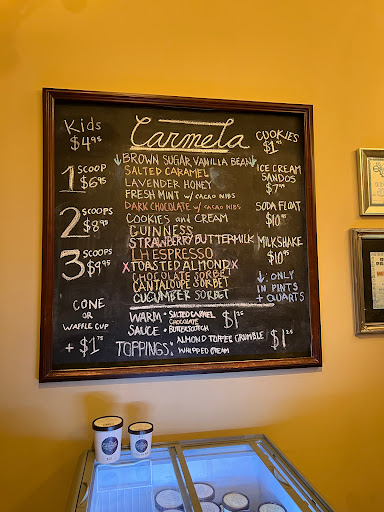 Carmela
Kids
$4.95
1 SCOOP
$6.95
2 SCOOPS
$8.95
3 SCOOPS
$9.95
CONE
OR
WAFFLE CUP
+ $1.75
↓ BROWN SUGAR VANILLA BEAN ↓
SALTED CARAMEL
LAVENDER HONEY
FRESH MINT w/ CACAO NIBS
DARK CHOCOLATE w/ CACAO NIBS
COOKIES and CREAM
GUINNESS
STRAWBERRY BUTTERMILK
LH ESPRESSO
X TOASTED ALMOND X
CHOCOLATE SORBET
CANTALOUPE SORBET
CUCUMBER SORBET
COOKIES
ICE CREAM
SANDOS
SODA FLOAT
$10
MILKSHAKE
$10.95
↓ ONLY
IN PINTS
+ QUARTS
WARM • SALTED CARAMEL
CHOCOLATE
SAUCE • BUTTERSCOTCH
$1.25
TOPPINGS: • ALMOND TOFFEE CRUMBLE
WHIPPED CREAM
$1.25